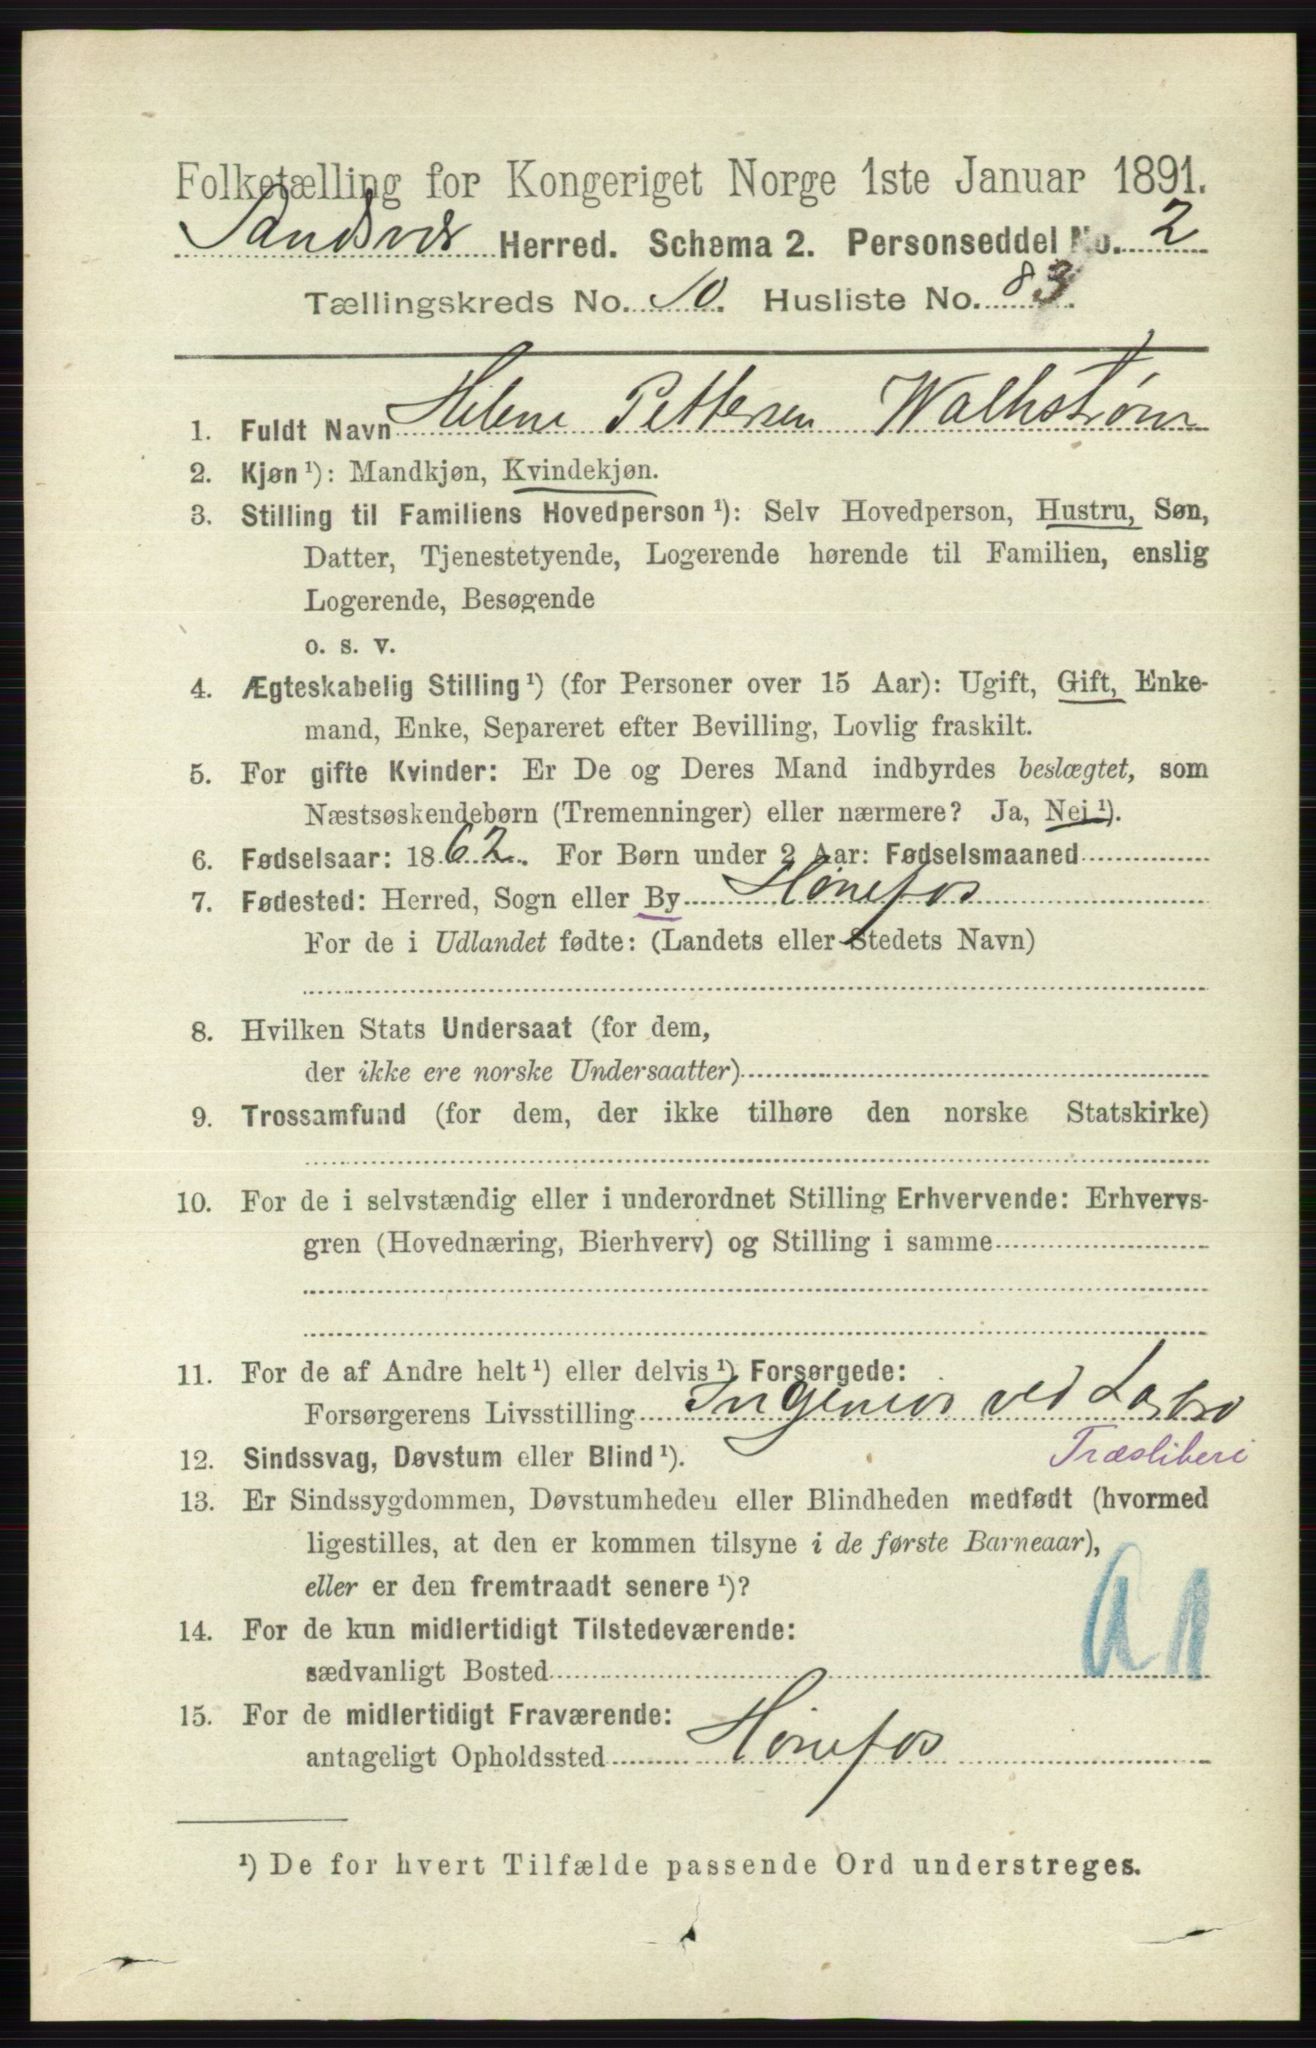 Folketælling for Kongeriget Norge 1ste Januar 1891.
Sandsvær Herred. Schema 2. Personseddel No. 2
Tællingskreds No. 10. Husliste No. 83.
1. Fuldt Navn Helene Pettersen Walhstrøm
2. Kjøn¹): Mandkjøn, Kvindekjøn.
3. Stilling til Familiens Hovedperson¹): Selv Hovedperson, Hustru, Søn,
Datter, Tjenestetyende, Logerende hørende til Familien, enslig
Logerende, Besøgende
o. s. v.
4. Ægteskabelig Stilling¹) (for Personer over 15 Aar): Ugift, Gift, Enke-
mand, Enke, Separeret efter Bevilling, Lovlig fraskilt.
5. For gifte Kvinder: Er De og Deres Mand indbyrdes beslægtet, som
Næstsøskendebørn (Tremenninger) eller nærmere? Ja, Nei¹).
6. Fødselsaar: 1862. For Børn under 2 Aar: Fødselsmaaned
7. Fødested: Herred, Sogn eller By Hønefos
For de i Udlandet fødte: (Landets eller Stedets Navn)
8. Hvilken Stats Undersaat (for dem,
der ikke ere norske Undersaatter)
9. Trossamfund (for dem, der ikke tilhøre den norske Statskirke)
10. For de i selvstændig eller i underordnet Stilling Erhvervende: Erhvervs-
gren (Hovednæring, Bierhverv) og Stilling i samme
11. For de af Andre helt¹) eller delvis¹) Forsørgede:
Forsørgerens Livsstilling Ingeniør ved Labro
Træsliberi
12. Sindssvag, Døvstum eller Blind¹).
13. Er Sindssygdommen, Døvstumheden eller Blindheden medfødt (hvormed
ligestilles, at den er kommen tilsyne i de første Barneaar),
eller er den fremtraadt senere¹)?
14. For de kun midlertidigt Tilstedeværende:
sædvanligt Bosted
15. For de midlertidigt Fraværende:
antageligt Opholdssted Hønefos
¹) De for hvert Tilfælde passende Ord understreges.